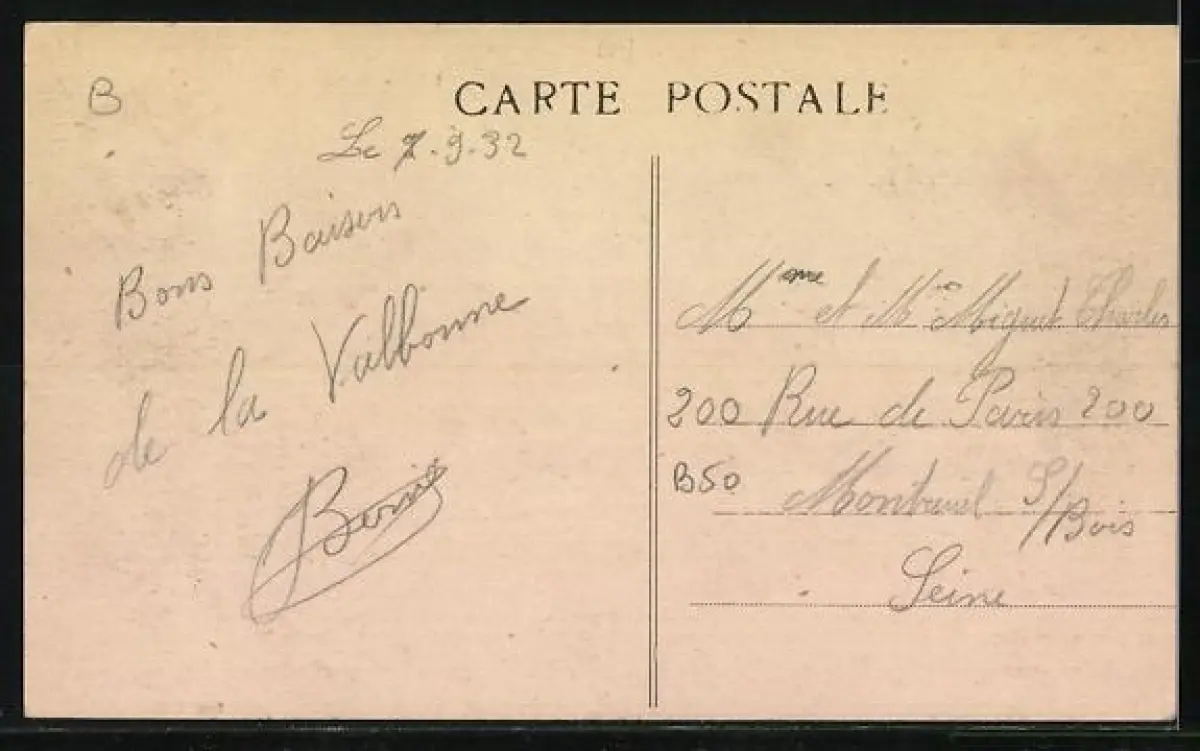 B
CARTE POSTALE
Le 7.9.32
Bons Baisers
de la Valbonne
Mme et Mr Miguet Charles
200 Rue de Paris 200
B50
Montreuil S/Bois
Seine